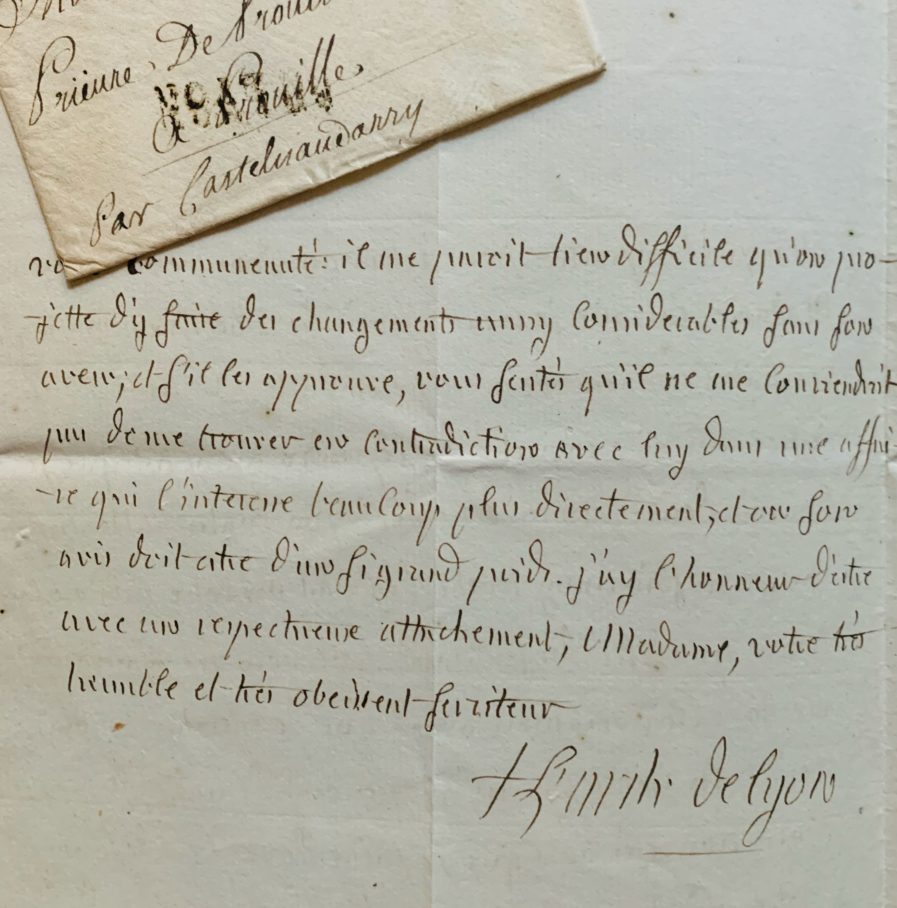 Prieure De Prouille
a Prouille
Par Castelnaudarry
communeauté: il me paroit bien difficile qu'on pro-
-jette d'y faire des changements aussy Considerables sans son
aveu; et s'il les approuve, vous sentés qu'il ne me Conviendroit
pas de me trouver en Contradiction avec luy dans une affai-
-re qui l'interesse beaucoup plus directement, et ou son
avis doit etre d'un si grand poids. j'ay l'honneur d'etre
avec un respectueuse attachement, Madame, votre trés
humble et trés obeissent serviteur
+ L'arch. de Lyon